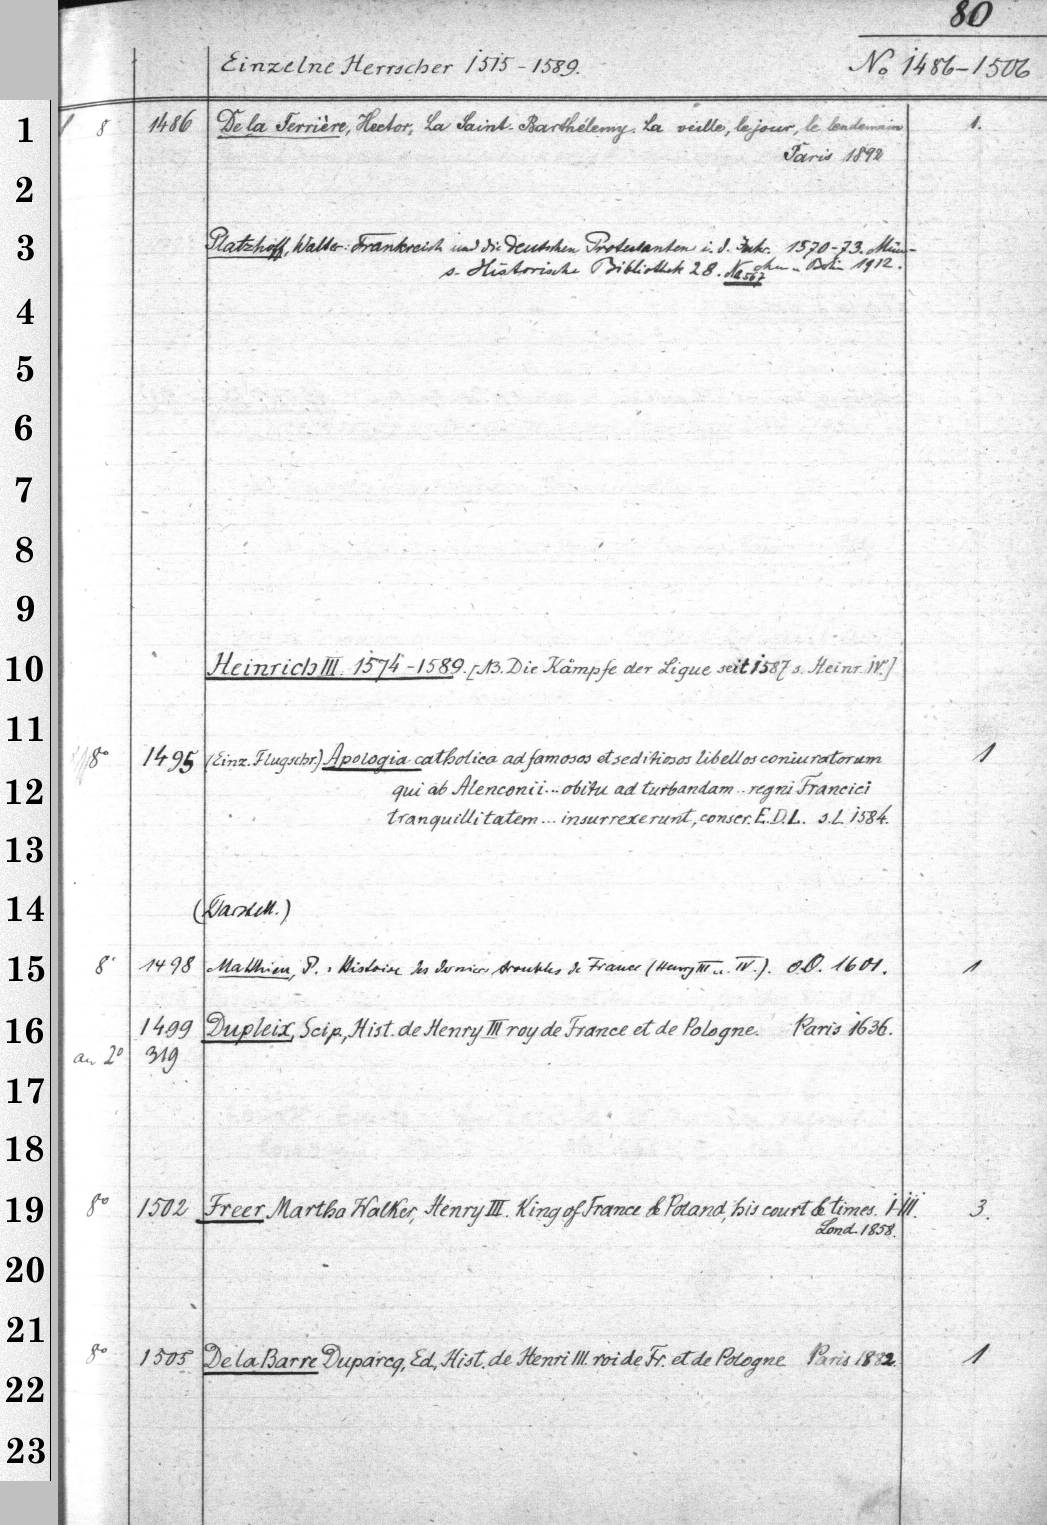 80
Einzelne Herrscher 1515-1589. No 1486-1506
1 8 1486 De la Ferrière, Hector, La Saint-Barthélemy. La veille, le jour, le lendemain 1.
Paris 1892
2
3 Platzhoff, Walter: Frankreich und die deutschen Protestanten i. d. Jahr. 1570-73. Mün-
chen u. Berlin 1912.
s. Historische Bibliothek 28. No 567
4
5
6
7
8
9
10 Heinrich III. 1574-1589. [NB. Die Kämpfe der Ligue seit 1587 s. Heinr. IV.]
11
8° 1495 (Einz. Flugschr.) Apologia catholica ad famosos et seditiosos libellos coniuratorum 1
12 qui ab Alenconii... obitu ad turbandam.. regni Francici
tranquillitatem... insurrexerunt, conscr. E.D.L. s.l. 1584.
13
14 (Darstell.)
15 8° 1498 Matthieu, P.: Histoire des derniers troubles de France (Henry III u. IV.). o.O. 1601. 1
16 1499 Dupleix, Scip., Hist. de Henry III roy de France et de Pologne. Paris 1636.
an 2° 319
17
18
19 8° 1502 Freer, Martha Walker, Henry III. King of France & Poland, his court & times. I-III. 3.
Lond. 1858.
20
21
8° 1505 De la Barre Duparcq, Ed., Hist. de Henri III. roi de Fr. et de Pologne Paris 1882. 1
22
23